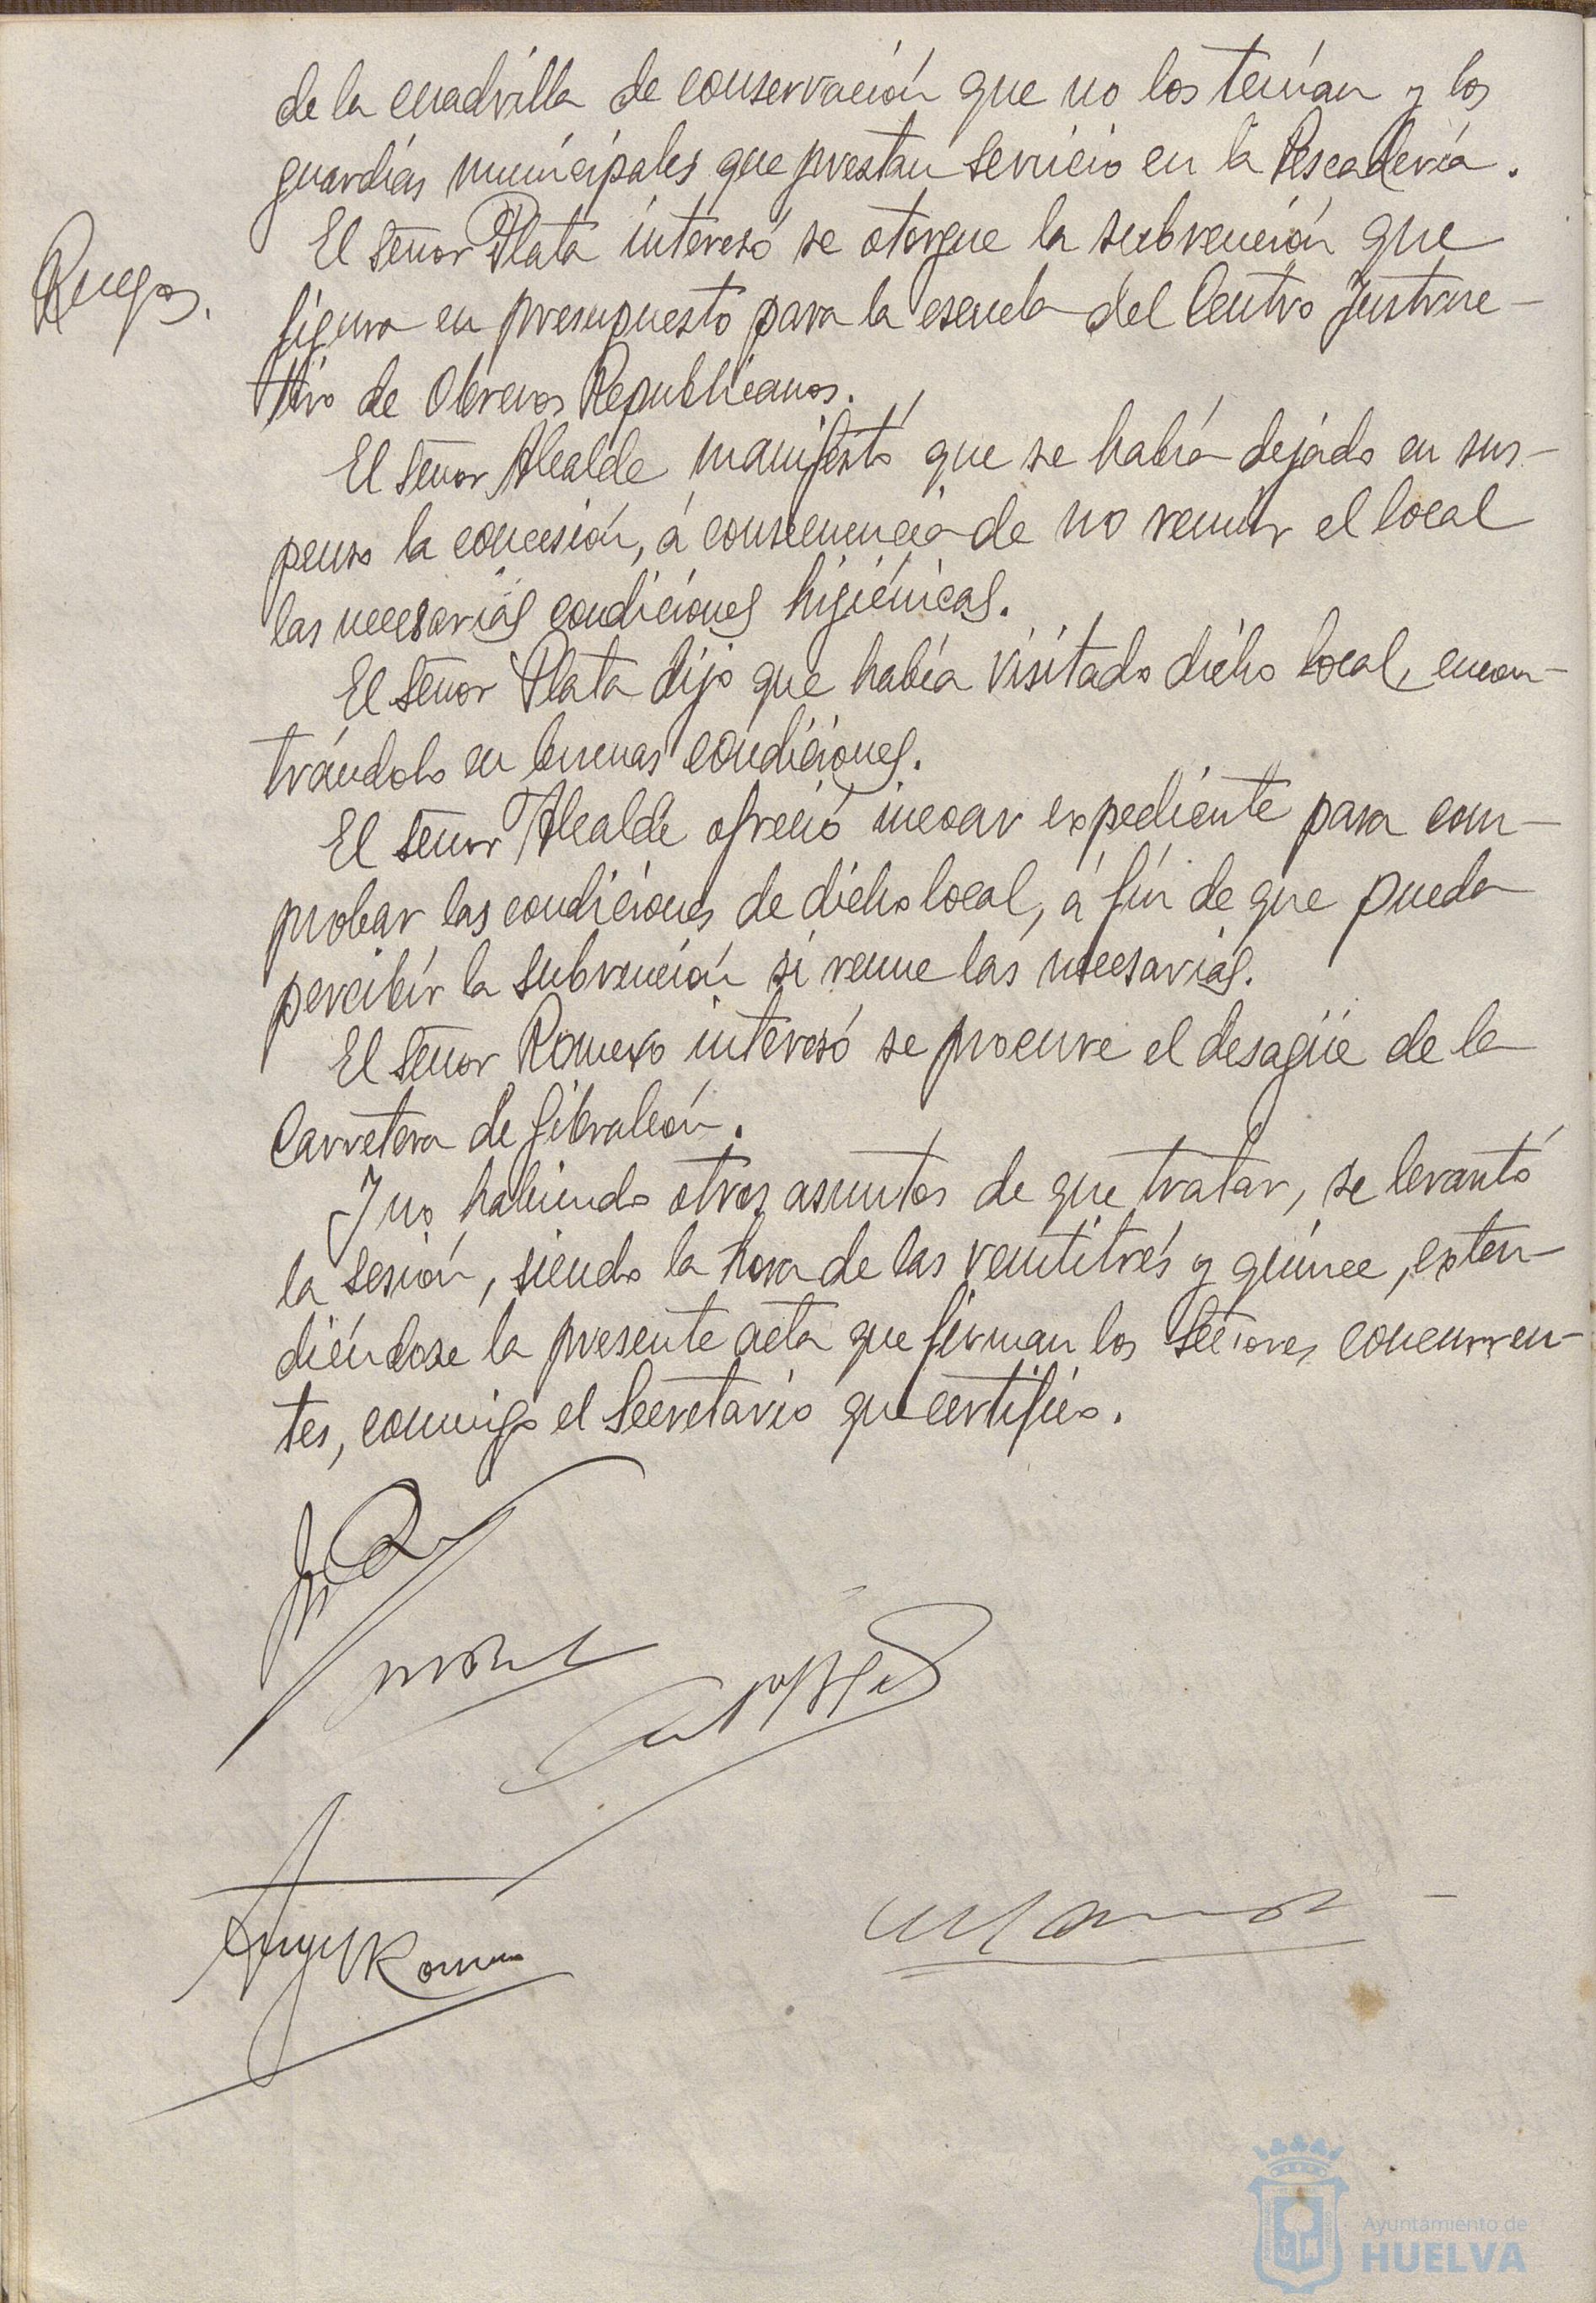 de la cuadrilla de conservación que no los tenían y los
guardias municipales que prestan servicio en la Pescadería.
Ruegos.
El Señor Plata interesó se otorgue la subvención que
figura en presupuesto para la escuela del Centro Instruc-
tivo de Obreros Republicanos.
El Señor Alcalde manifestó que se había dejado en sus-
penso la concesión, á consecuencia de no reunir el local
las necesarias condiciones higiénicas.
El Señor Plata dijo que había visitado dicho local, encon-
trándolo en buenas condiciones.
El Señor Alcalde ofreció incoar expediente para com-
probar las condiciones de dicho local, á fin de que pueda
percibir la subvención si reune las necesarias.
El Señor Romero interesó se procure el desagüe de la
Carretera de Gibraleón.
Y no habiendo otros asuntos de que tratar, se levantó
la sesión, siendo la hora de las veintitrés y quince, exten-
diéndose la presente acta que firman los Señores concurren-
tes, conmigo el Secretario que certifico.
Angel Romero
Ayuntamiento de
HUELVA